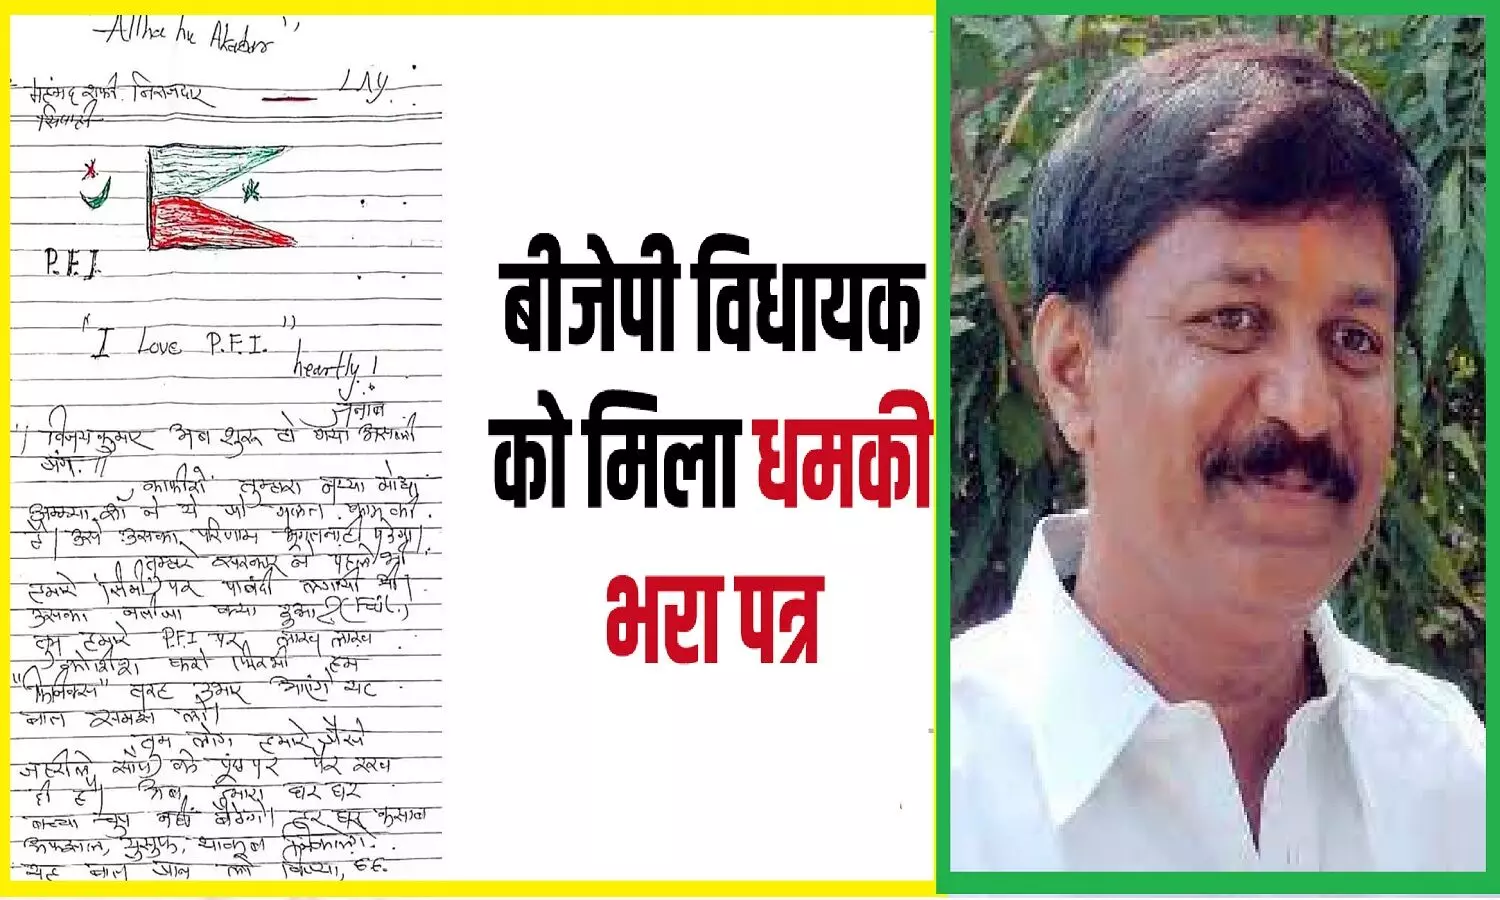 "Allha hu Akabar"
महंमद शफी बिराजदार
P.F.I.
"I Love P.F.I."
heartly!
जनाब
विजयकुमार अब शुरू हो गया असली
जंग.
काफीरों तुम्हारा
ने ये जो गलत काम की
है। उसे उसका परिणाम भुगतनाही पडेगा।
सरकार ने पहले भी
हमारे सिमी पर पाबंदी लगायी थी।
उसका नतीजा क्या हुआ?
तुम हमारे P.F.I पर लाख लाख
कोशीश करो फिरभी हम
"फिनिक्स" तरह उभार आएंगे यह
बात समझ लो।
तुम लोग हमारे जैसे
जहरीले साँप के पूंछ पर पैर रख
ही है। अब हमारा घर घर
बच्चा चुप नहीं बैठेगा। हर घर कसाब
अफझल, युसुफ, याकूब निकालो.
यह बात जान लो
बीजेपी विधायक
को मिला धमकी
भरा पत्र